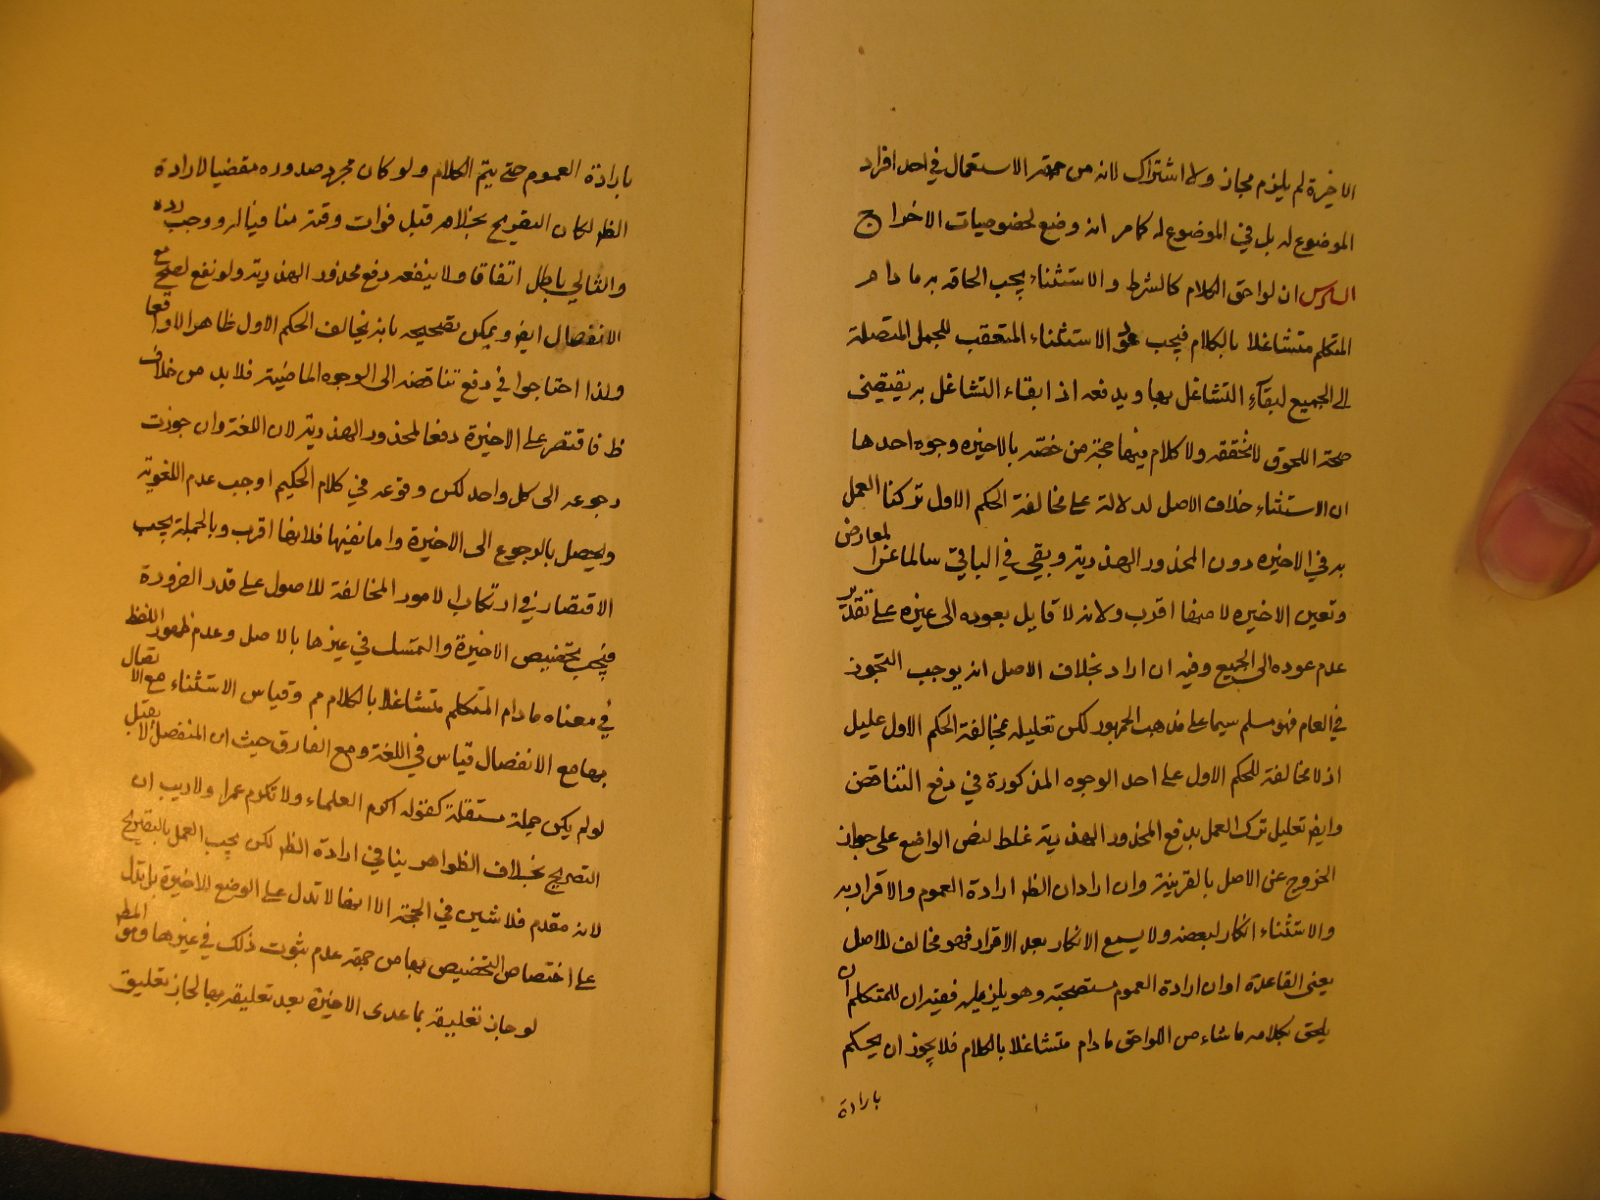 الاخيرة لم يلزم مجاز ولا اشتراك لانه من جهة الاستعمال في احد افراد
الموضوع له بل في الموضوع له كما مر انه وضع لخصوصيات الاخراج
السادس ان لواحق الكلام كالشرط والاستثناء يجب الحاقه بر مادام
المتكلم متشاغلا بالكلام فيجب لحوق الاستثناء المتعقب للجمل المتصلة
الى الجميع لبقاء التشاغل بها ويدفعه اذ ابقاء التشاغل به يقتضى
صحة اللحوق لا تحققه ولا كلام فيها حجة من خصه بالاخيره وجوه احدها
ان الاستثناء خلاف الاصل لدلالة على مخالفة الحكم الاول تركنا العمل
به في الاخيره دون المحذور الهذرية وبقى في الباقى سالما عن المعارض
وتعين الاخيره لانها اقرب ولانه لا قايل بعوده الى غيره على تقدير
عدم عوده الى الجميع وفيه ان اراد بخلاف الاصل انه يوجب التجوز
في العام فهو مسلم سيما على مذهب الجمهور لكن تعليله بمخالفة الحكم الاول عليل
اذ لا مخالفة للحكم الاول على احد الوجوه المذكورة في دفع التناقض
وايضر تعليل ترك العمل بدفع المحذور الهذرية غلط لنص الواضع على جواز
الخروج عن الاصل بالقرينة وان اراد ان الظ ارادة العموم والاقرار به
والاستثناء انكار لبعضه ولا يسمع الانكار بعد الاقرار فهو مخالف للاصل
يعنى القاعدة او ان ارادة العموم مستصحبة وهو يلزمه ففيه ان للمتكلم ان
يلحق بكلامه ما شاء من اللواحق مادام متشاغلا بالكلام فلا يجوز ان يحكم
بارادة
بارادة العموم حتى يتم الكلام ولو كان مجرد صدوره مقضيا لارادة
الظ لكان التصريح بخلافه قبل فوات وقته منافيا له ووجب رده
والتالي باطل اتفاقا ولا ينفعه دفع محذور الهذرية ولو نفع لصح مع
الانفصال ايضر ويمكن تصحيحه بانه يخالف الحكم الاول ظاهرا لا واقعا
ولذا احتاجوا في دفع تناقضه الى الوجوه الماضية فلا بد من خلاف
ظ فاقتصر على الاخيرة دفعا لمحذور الهذرية لان اللغة وان جوزت
رجوعه الى كل واحد لكن وقوعه في كلام الحكيم اوجب عدم اللغوية
ويحصل بالرجوع الى الاخيرة واما تعينها فلانها اقرب وبالجملة يجب
الاقتصار في ارتكاب الامور المخالفة للاصول على قدر الضرورة
فيجب تخصيص الاخيرة والتمسك في غيرها بالاصل وعدم ظهور اللفظ
في معناه مادام المتكلم متشاغلا بالكلام مم وقياس الاستثناء مع الاتصال
بها مع الانفصال قياس في اللغة ومع الفارق حيث ان المنفصل لا يقبل
لو لم يكن جملة مستقلة كقوله اكرم العلماء ولا تكرم عمرا ولا ريب ان
التصريح بخلاف الظواهر ينافي ارادة الظ لكن يجب العمل بالتصريح
لانه مقدم فلا شين في الحجة الا انها لا تدل على الوضع للاخيرة بل تدل
على اختصاص التخصيص بها من جهة عدم ثبوت ذلك في غيرها وهو المط
لو جاز تعليقه بماعدى الاخيرة بعد تعليقه بها لجاز تعليق